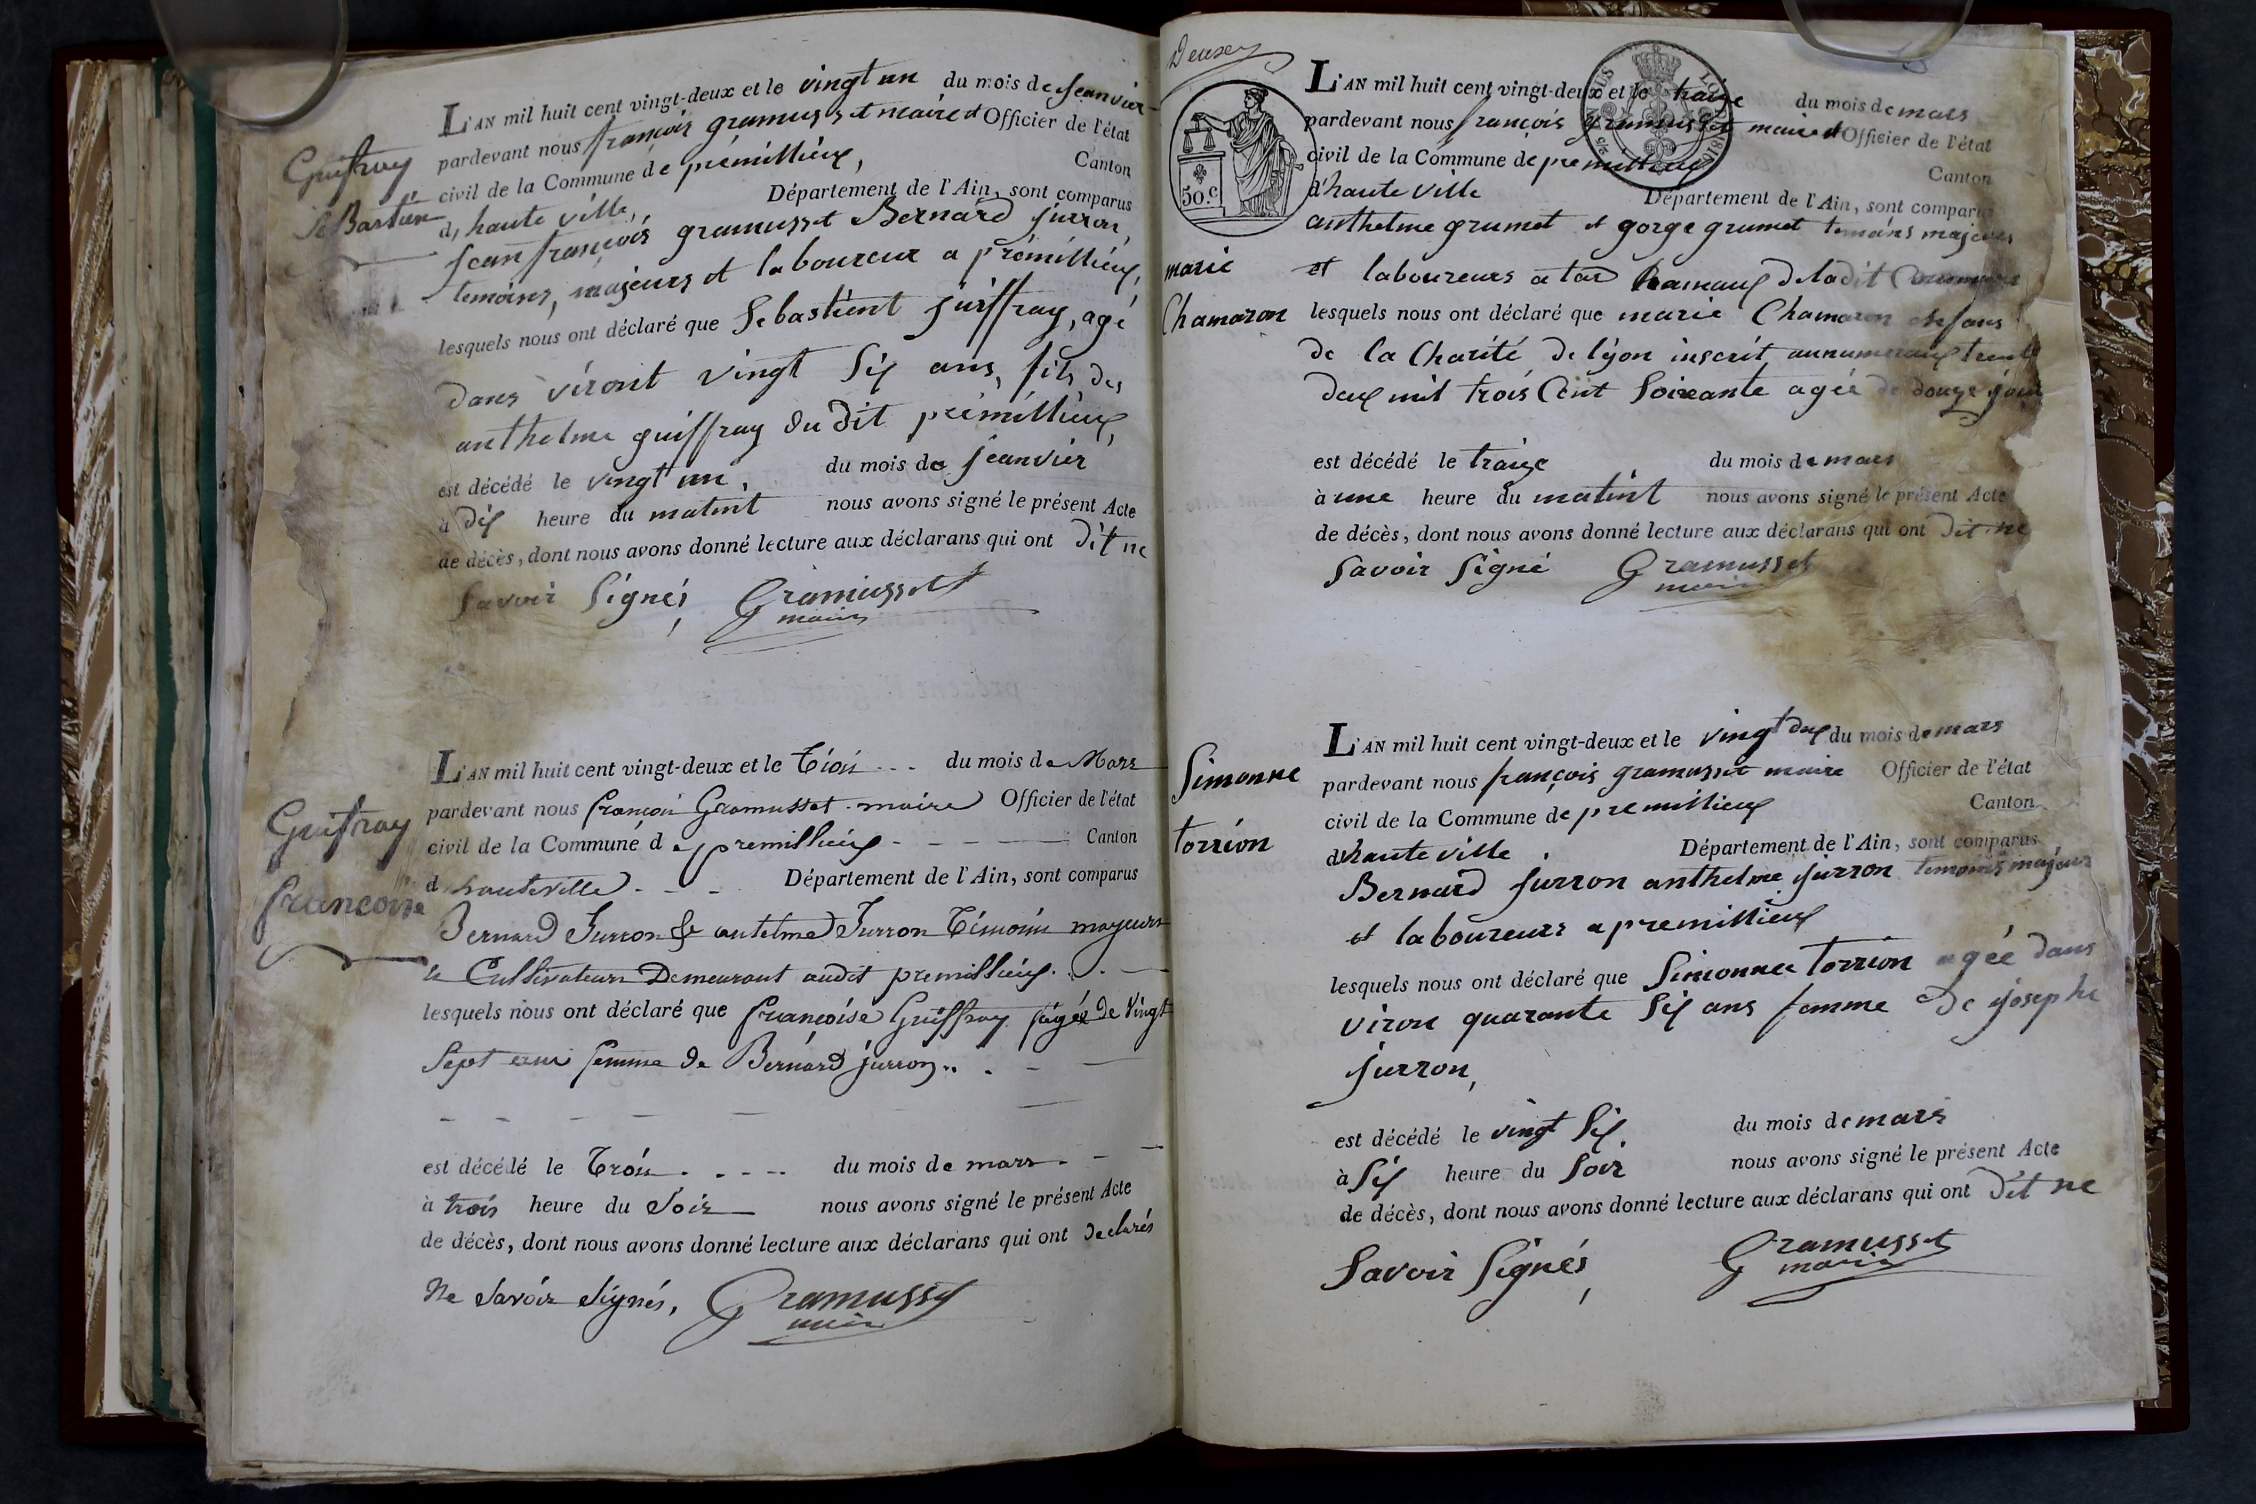 L'AN mil huit cent vingt-deux et le vingt un du mois de Jeanvier
Guiffray pardevant nous françois gramusset maire et Officier de l'état
civil de la Commune de prémillieux, Canton
seBastien d, haute ville, Département de l'Ain, sont comparus
Jean françois gramusset Bernard jurron,
temoins, majeurs et laboureur a prémillieux,
lesquels nous ont déclaré que Sebastient juiffray, agé
dans viront vingt Six ans, fils des
anthelme guiffray du dit prémillieux,
est décédé le vingt un, du mois de jeanvier
à dix heure du matint nous avons signé le présent Acte
de décès, dont nous avons donné lecture aux déclarans qui ont dit ne
Savoir Signés, Gramusset
maire
L'AN mil huit cent vingt-deux et le trois du mois de Mars
Guiffray pardevant nous françois Gramusset maire Officier de l'état
civil de la Commune de premillieux Canton
françoise d hauteville Département de l'Ain, sont comparus
Bernard Jurron & antelme Jurron Témoins majeurs
et Cultivateurs Demeurant audit premillieux
lesquels nous ont déclaré que françoise Guiffray agée de Vingt
Sept ans femme de Bernard jurron
est décédé le trois du mois de mars
à trois heure du Soir nous avons signé le présent Acte
de décès, dont nous avons donné lecture aux déclarans qui ont declarés
Ne Savoir Signés, Gramusset
maire
Deuxe
50.c
L'AN mil huit cent vingt-deux et le traize du mois de mars
pardevant nous françois gramusset maire et Officier de l'état
civil de la Commune de premillieux Canton
d'haute ville Département de l'Ain, sont comparus
anthelme grumet et gorge grumet temoins majeurs
marie et laboureurs a tar hameaux de ladit Commune
Chamaron lesquels nous ont déclaré que marie Chamaron enfans
de la Charité de lÿon inscrit aunumeraux trente
deux mil trois Cent Soixante agée de douze jour
est décédé le traize du mois de mars
à une heure du matint nous avons signé le présent Acte
de décès, dont nous avons donné lecture aux déclarans qui ont dit ne
Savoir Signé Gramusset
maire
L'AN mil huit cent vingt-deux et le vingt dux du mois de mars
Simonne pardevant nous françois gramusset maire Officier de l'état
civil de la Commune de premillieux Canton
torrion dhaute ville Département de l'Ain, sont comparus
Bernard jurron anthelme jurron temoins majeur
et laboureurs a premillieux
lesquels nous ont déclaré que Simonnee torrion agée dans
viron quarante Six ans femme de joseph
jurron,
est décédé le vingt Six. du mois de mars
à Six heure du Soir nous avons signé le présent Acte
de décès, dont nous avons donné lecture aux déclarans qui ont dit ne
Savoir Signés, Gramusset
maire